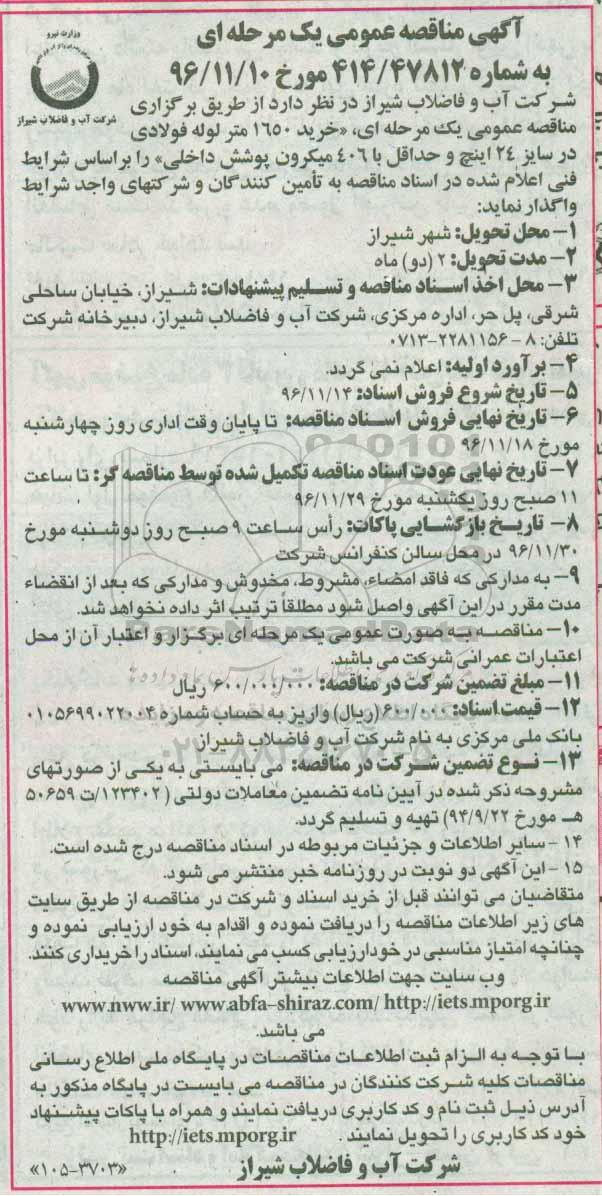 آگهی مناقصه عمومی یک مرحله ای
به شماره ۴۱۴/۴۷۸۱۲ مورخ ۹۶/۱۱/۱۰
وزارت نیرو
شرکت آب و فاضلاب شیراز
شرکت آب و فاضلاب شیراز در نظر دارد از طریق برگزاری
مناقصه عمومی یک مرحله ای، «خرید ۱۶۵۰ متر لوله فولادی
در سایز ۲۴ اینچ و حداقل با ۴۰۶ میکرون پوشش داخلی» را براساس شرایط
فنی اعلام شده در اسناد مناقصه به تأمین کنندگان و شرکتهای واجد شرایط
واگذار نماید:
۱- محل تحویل: شهر شیراز
۲- مدت تحویل: ۲ (دو) ماه
۳- محل اخذ اسناد مناقصه و تسلیم پیشنهادات: شیراز، خیابان ساحلی
شرقی، پل حر، اداره مرکزی، شرکت آب و فاضلاب شیراز، دبیرخانه شرکت
تلفن: ۸ - ۲۲۸۱۱۵۶-۰۷۱۳
۴- برآورد اولیه: اعلام نمی گردد.
۵- تاریخ شروع فروش اسناد: ۹۶/۱۱/۱۴
۶- تاریخ نهایی فروش اسناد مناقصه: تا پایان وقت اداری روز چهارشنبه
مورخ ۹۶/۱۱/۱۸
۷- تاریخ نهایی عودت اسناد مناقصه تکمیل شده توسط مناقصه گر: تا ساعت
۱۱ صبح روز یکشنبه مورخ ۹۶/۱۱/۲۹
۸- تاریخ بازگشایی پاکات: رأس ساعت ۹ صبح روز دوشنبه مورخ
۹۶/۱۱/۳۰ در محل سالن کنفرانس شرکت
۹- به مدارکی که فاقد امضاء، مشروط، مخدوش و مدارکی که بعد از انقضاء
مدت مقرر در این آگهی واصل شود مطلقاً ترتیب اثر داده نخواهد شد.
۱۰- مناقصه به صورت عمومی یک مرحله ای برگزار و اعتبار آن از محل
اعتبارات عمرانی شرکت می باشد.
۱۱- مبلغ تضمین شرکت در مناقصه: ۶۰۰/۰۰۰/۰۰۰ ریال
۱۲- قیمت اسناد: ۶۰۰/۰۰۰ (ریال) واریز به حساب شماره ۰۱۰۵۶۹۹۰۲۲۰۰۴
بانک ملی مرکزی به نام شرکت آب و فاضلاب شیراز
۱۳- نوع تضمین شرکت در مناقصه: می بایستی به یکی از صورتهای
مشروحه ذکر شده در آیین نامه تضمین معاملات دولتی (۱۲۳۴۰۲/ت ۵۰۶۵۹
هـ مورخ ۹۴/۹/۲۲) تهیه و تسلیم گردد.
۱۴ - سایر اطلاعات و جزئیات مربوطه در اسناد مناقصه درج شده است.
۱۵ - این آگهی دو نوبت در روزنامه خبر منتشر می شود.
متقاضیان می توانند قبل از خرید اسناد و شرکت در مناقصه از طریق سایت
های زیر اطلاعات مناقصه را دریافت نموده و اقدام به خود ارزیابی نموده و
چنانچه امتیاز مناسبی در خودارزیابی کسب می نمایند، اسناد را خریداری کنند.
وب سایت جهت اطلاعات بیشتر آگهی مناقصه
www.nww.ir/ www.abfa-shiraz.com/ http://iets.mporg.ir
می باشد.
با توجه به الزام ثبت اطلاعات مناقصات در پایگاه ملی اطلاع رسانی
مناقصات کلیه شرکت کنندگان در مناقصه می بایست در پایگاه مذکور به
آدرس ذیل ثبت نام و کد کاربری دریافت نمایند و همراه با پاکات پیشنهاد
خود کد کاربری را تحویل نمایند. http://iets.mporg.ir
شرکت آب و فاضلاب شیراز «۳۷۰۳-۱۰۵»